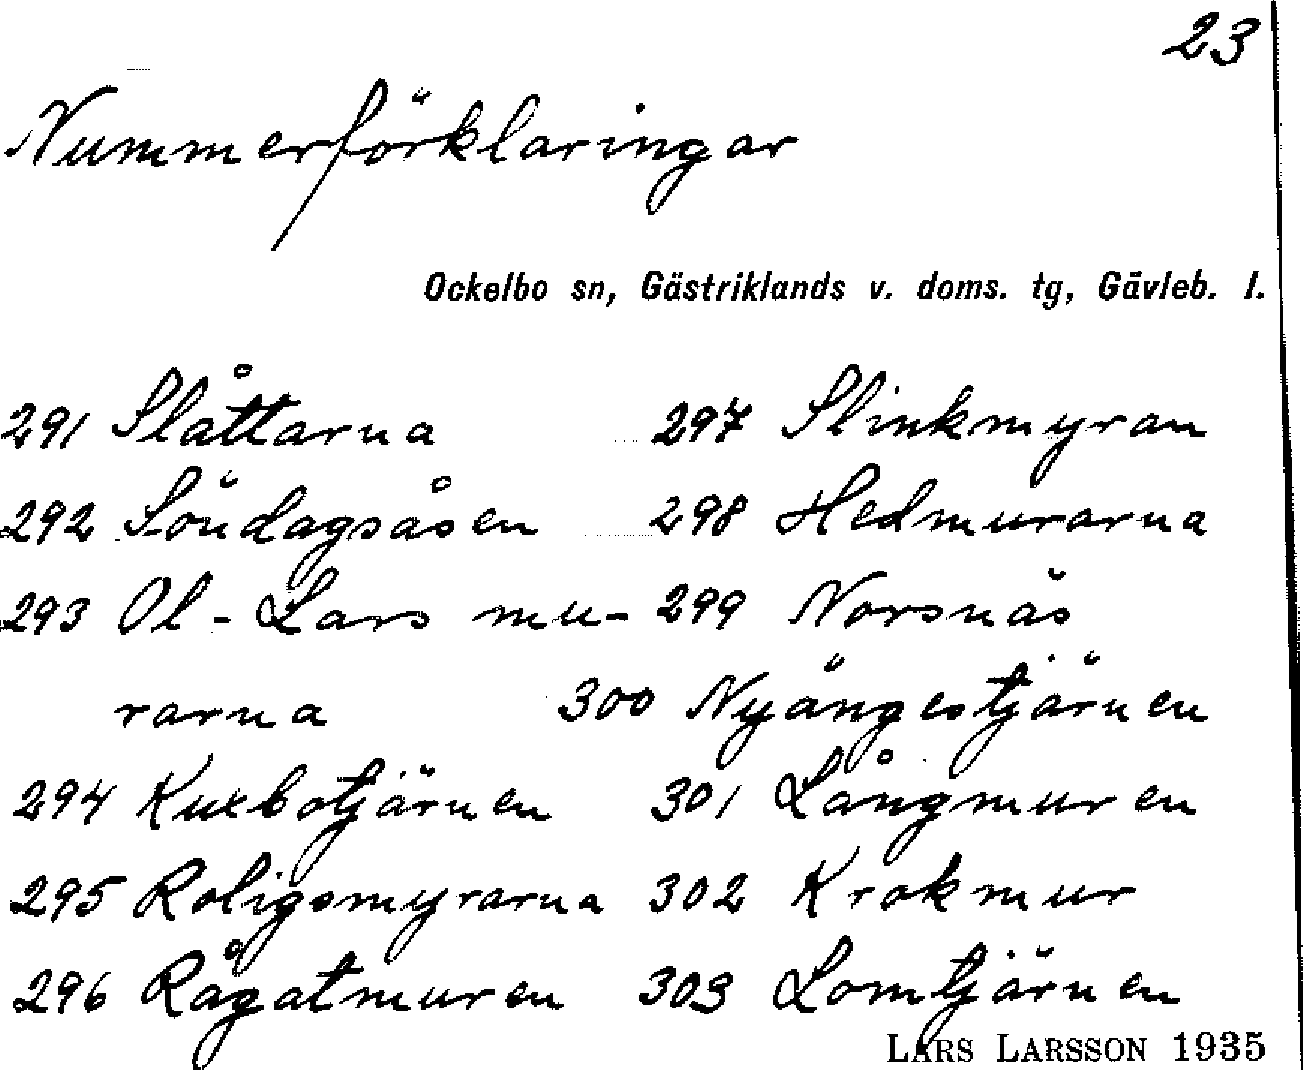 23
Nummerförklaringar
Ockelbo sn, Gästriklands v. doms. tg, Gävleb. l.
291 Slåttarna
292 Söndagsåsen
293 Ol-Lars mu-
rarna
294 Kuxbotjärnen
295 Roligsmyrarna
296 Rågatmuren
297 Slinkmyran
298 Hedmurarna
299 Norsnäs
300 Nyängestjärnen
301 Långmuren
302 Krokmur
303 Lomtjärnen
LARS LARSSON 1935